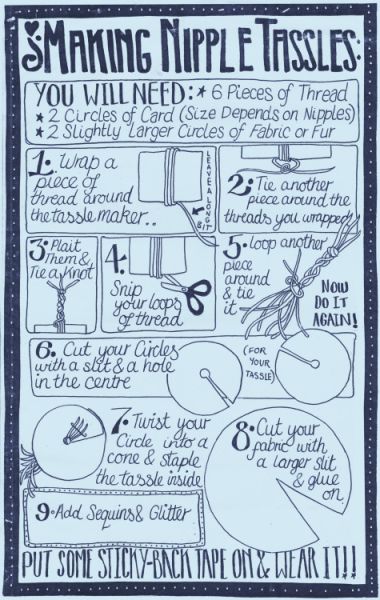 MAKING NIPPLE TASSLES:
YOU WILL NEED: * 6 Pieces of Thread
* 2 Circles of Card (Size Depends on Nipples)
* 2 Slightly Larger Circles of Fabric or Fur
1. Wrap a
piece of
thread around
the tassle maker..
LEAVE A LONG BIT
2. Tie another
piece around the
threads you wrapped
3. Plait
Them &
Tie a Knot
4.
Snip
your loops
of thread
5. loop another
piece
around & tie
it
NOW
DO IT
AGAIN!
6. Cut your Circles
with a slit & a hole
in the centre
(FOR
YOUR
TASSLE)
7. Twist your
Circle into a
cone & staple
the tassle inside
8. Cut your
fabric with
a larger slit
& glue
on
9. Add Sequins & Glitter
PUT SOME STICKY-BACK TAPE ON & WEAR IT!!